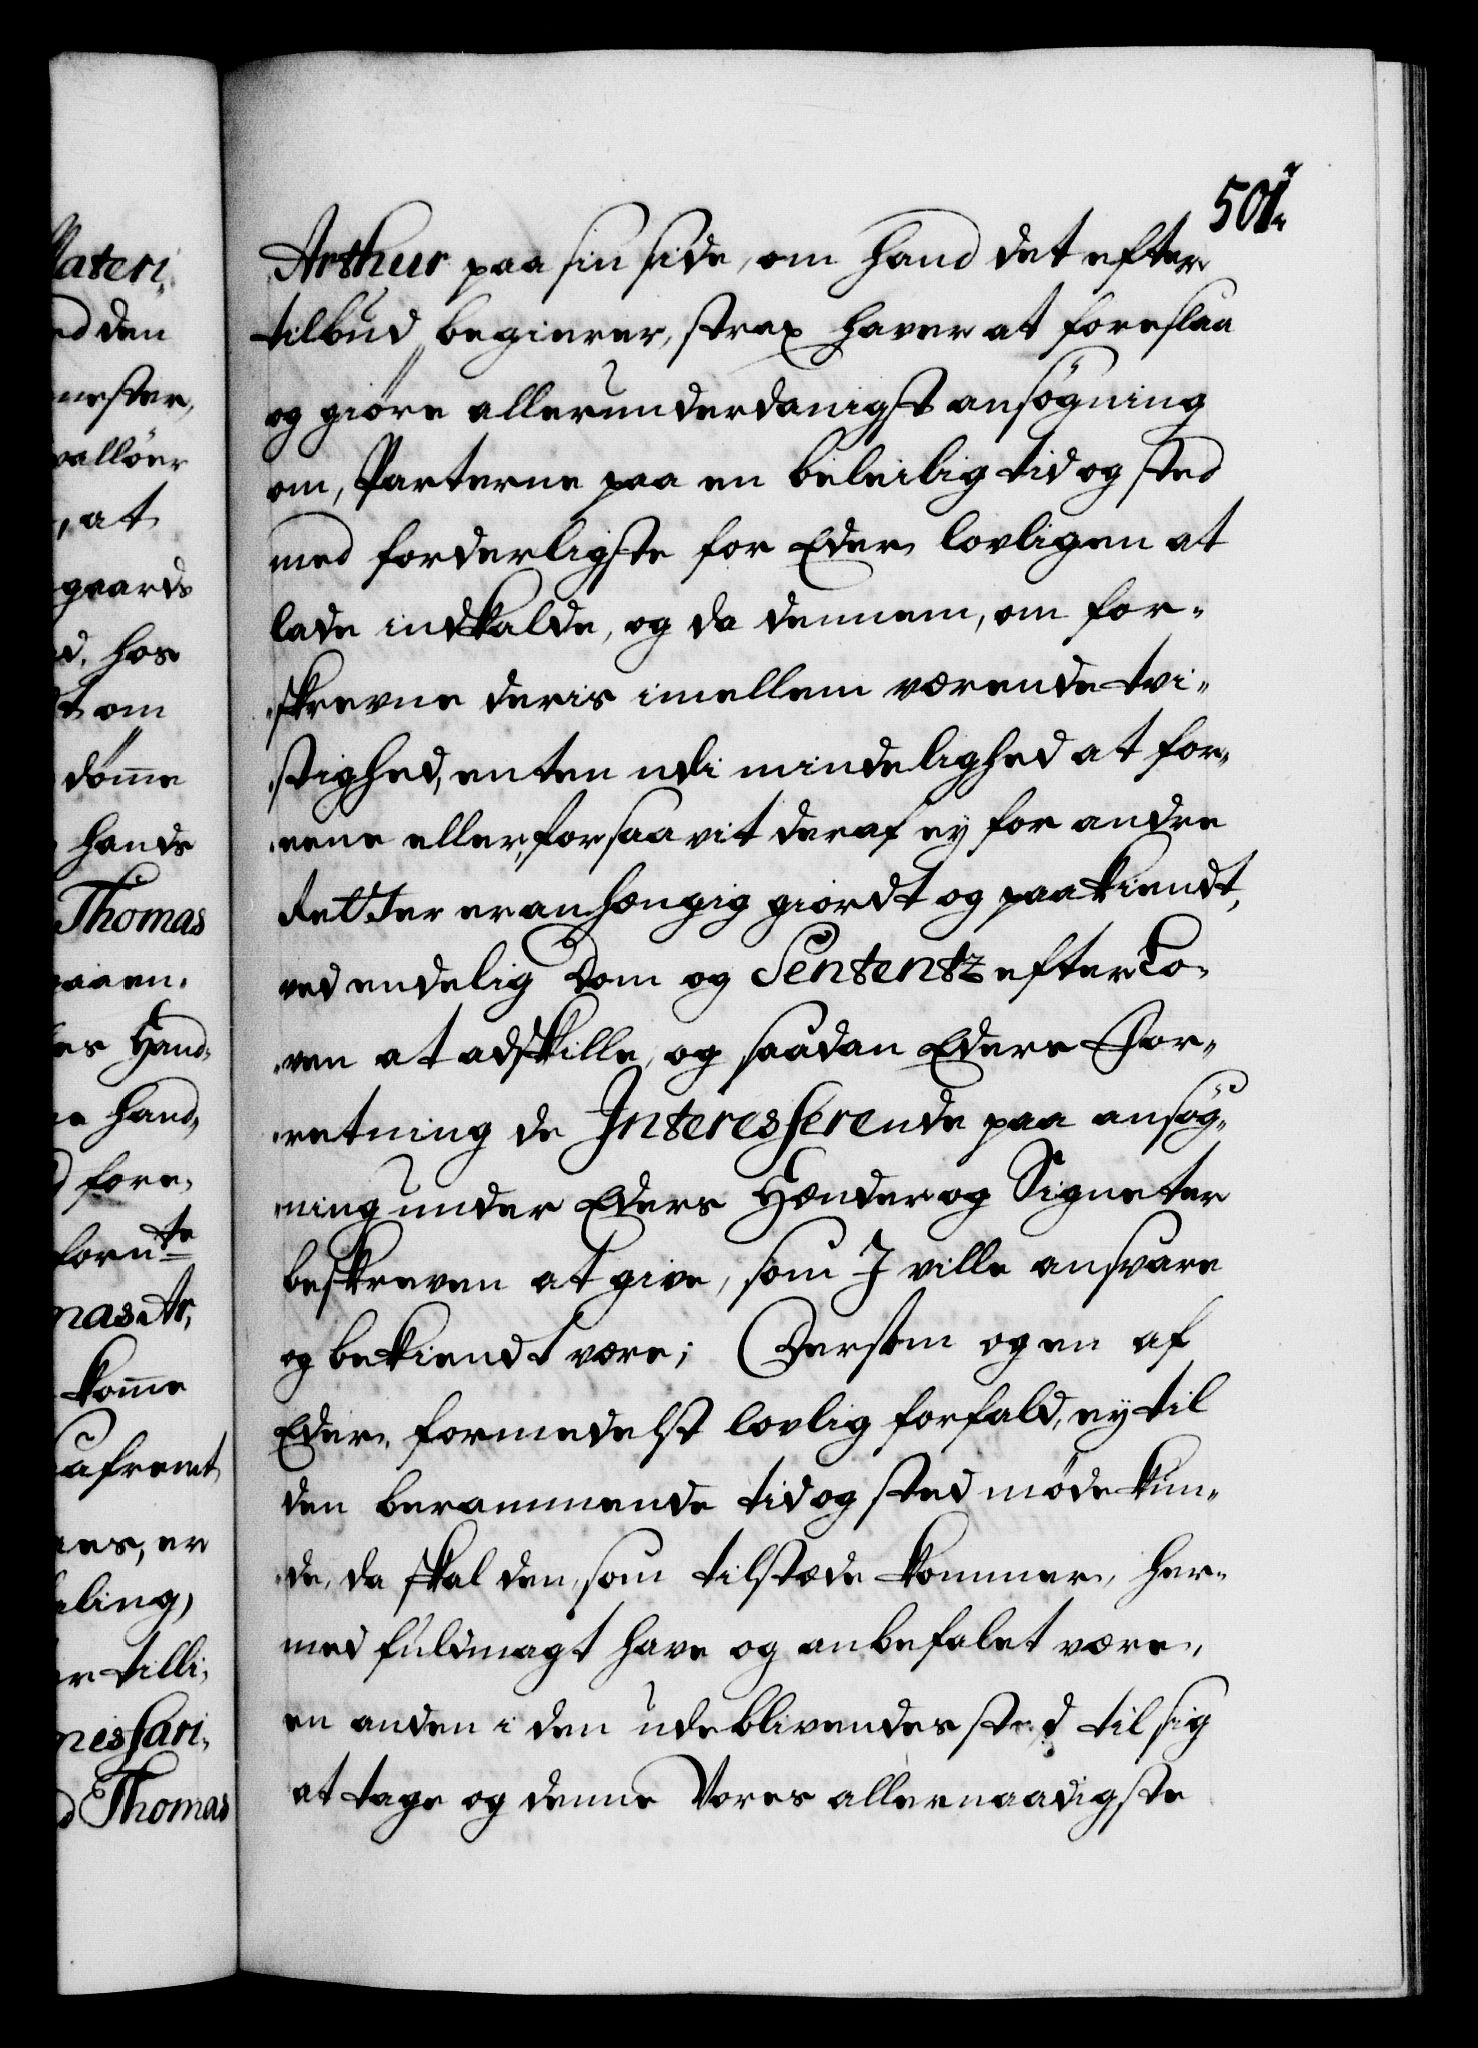 501.
Arthur paa sin side, om hand det efter
tilbud begierer, strax haver at foreslaa
og giöre allerunderdanigst ansögning
om, Parterne paa en beleilig tid og sted
med forderligste for Eder lovligen at
lade indkalde, og da dennem, om for-
skrevne deris imellem værende tvi-
stighed, enten udi mindelighed at for-
eene eller, forsaavit deraf ey for andre
Retter er anhængig giordt og paakiendt,
ved endelig Dom og Sententz efter Lo-
ven at adskille, og saadan Eders For-
retning de Interesserende paa ansög-
ning under Eders Hænder og Signeter
beskreven at give, som I ville ansvare
og bekiendt være; Dersom og en af
Eder, formedelst lovlig forfald, ey til
den berammende tid og sted möde kun-
de, da skal den, som tilstæde kommer, her-
med fuldmagt have og anbefalet være,
en anden i den udeblivendes sted til sig
at tage og denne Vores allernaadigste
Materi
den
mester,
at
gaards
hos
om
dom̅e
hands
Thomas
Hand-
hand,
fore-
Ar,
kom̅e
er
tilli,
Thomas